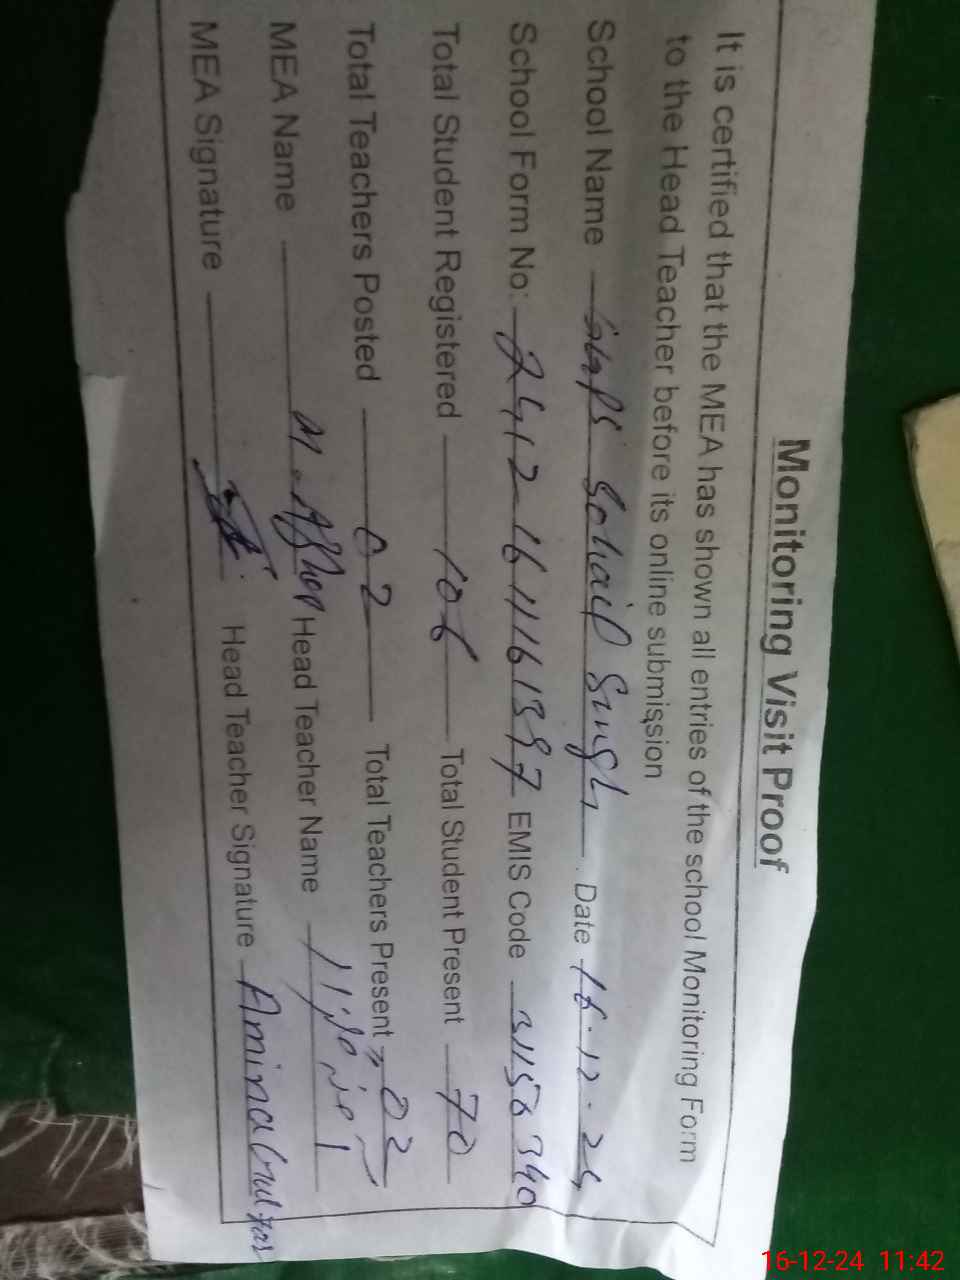 Monitoring Visit Proof
It is certified that the MEA has shown all entries of the school Monitoring Form
to the Head Teacher before its online submission
School Name Sohail Singh Date 16.12.24
School Form No: EMIS Code 31150340
Total Student Registered 106 Total Student Present 70
Total Teachers Posted 02 Total Teachers Present 02
MEA Name M. Head Teacher Name
MEA Signature Head Teacher Signature Amina
16-12-24 11:42